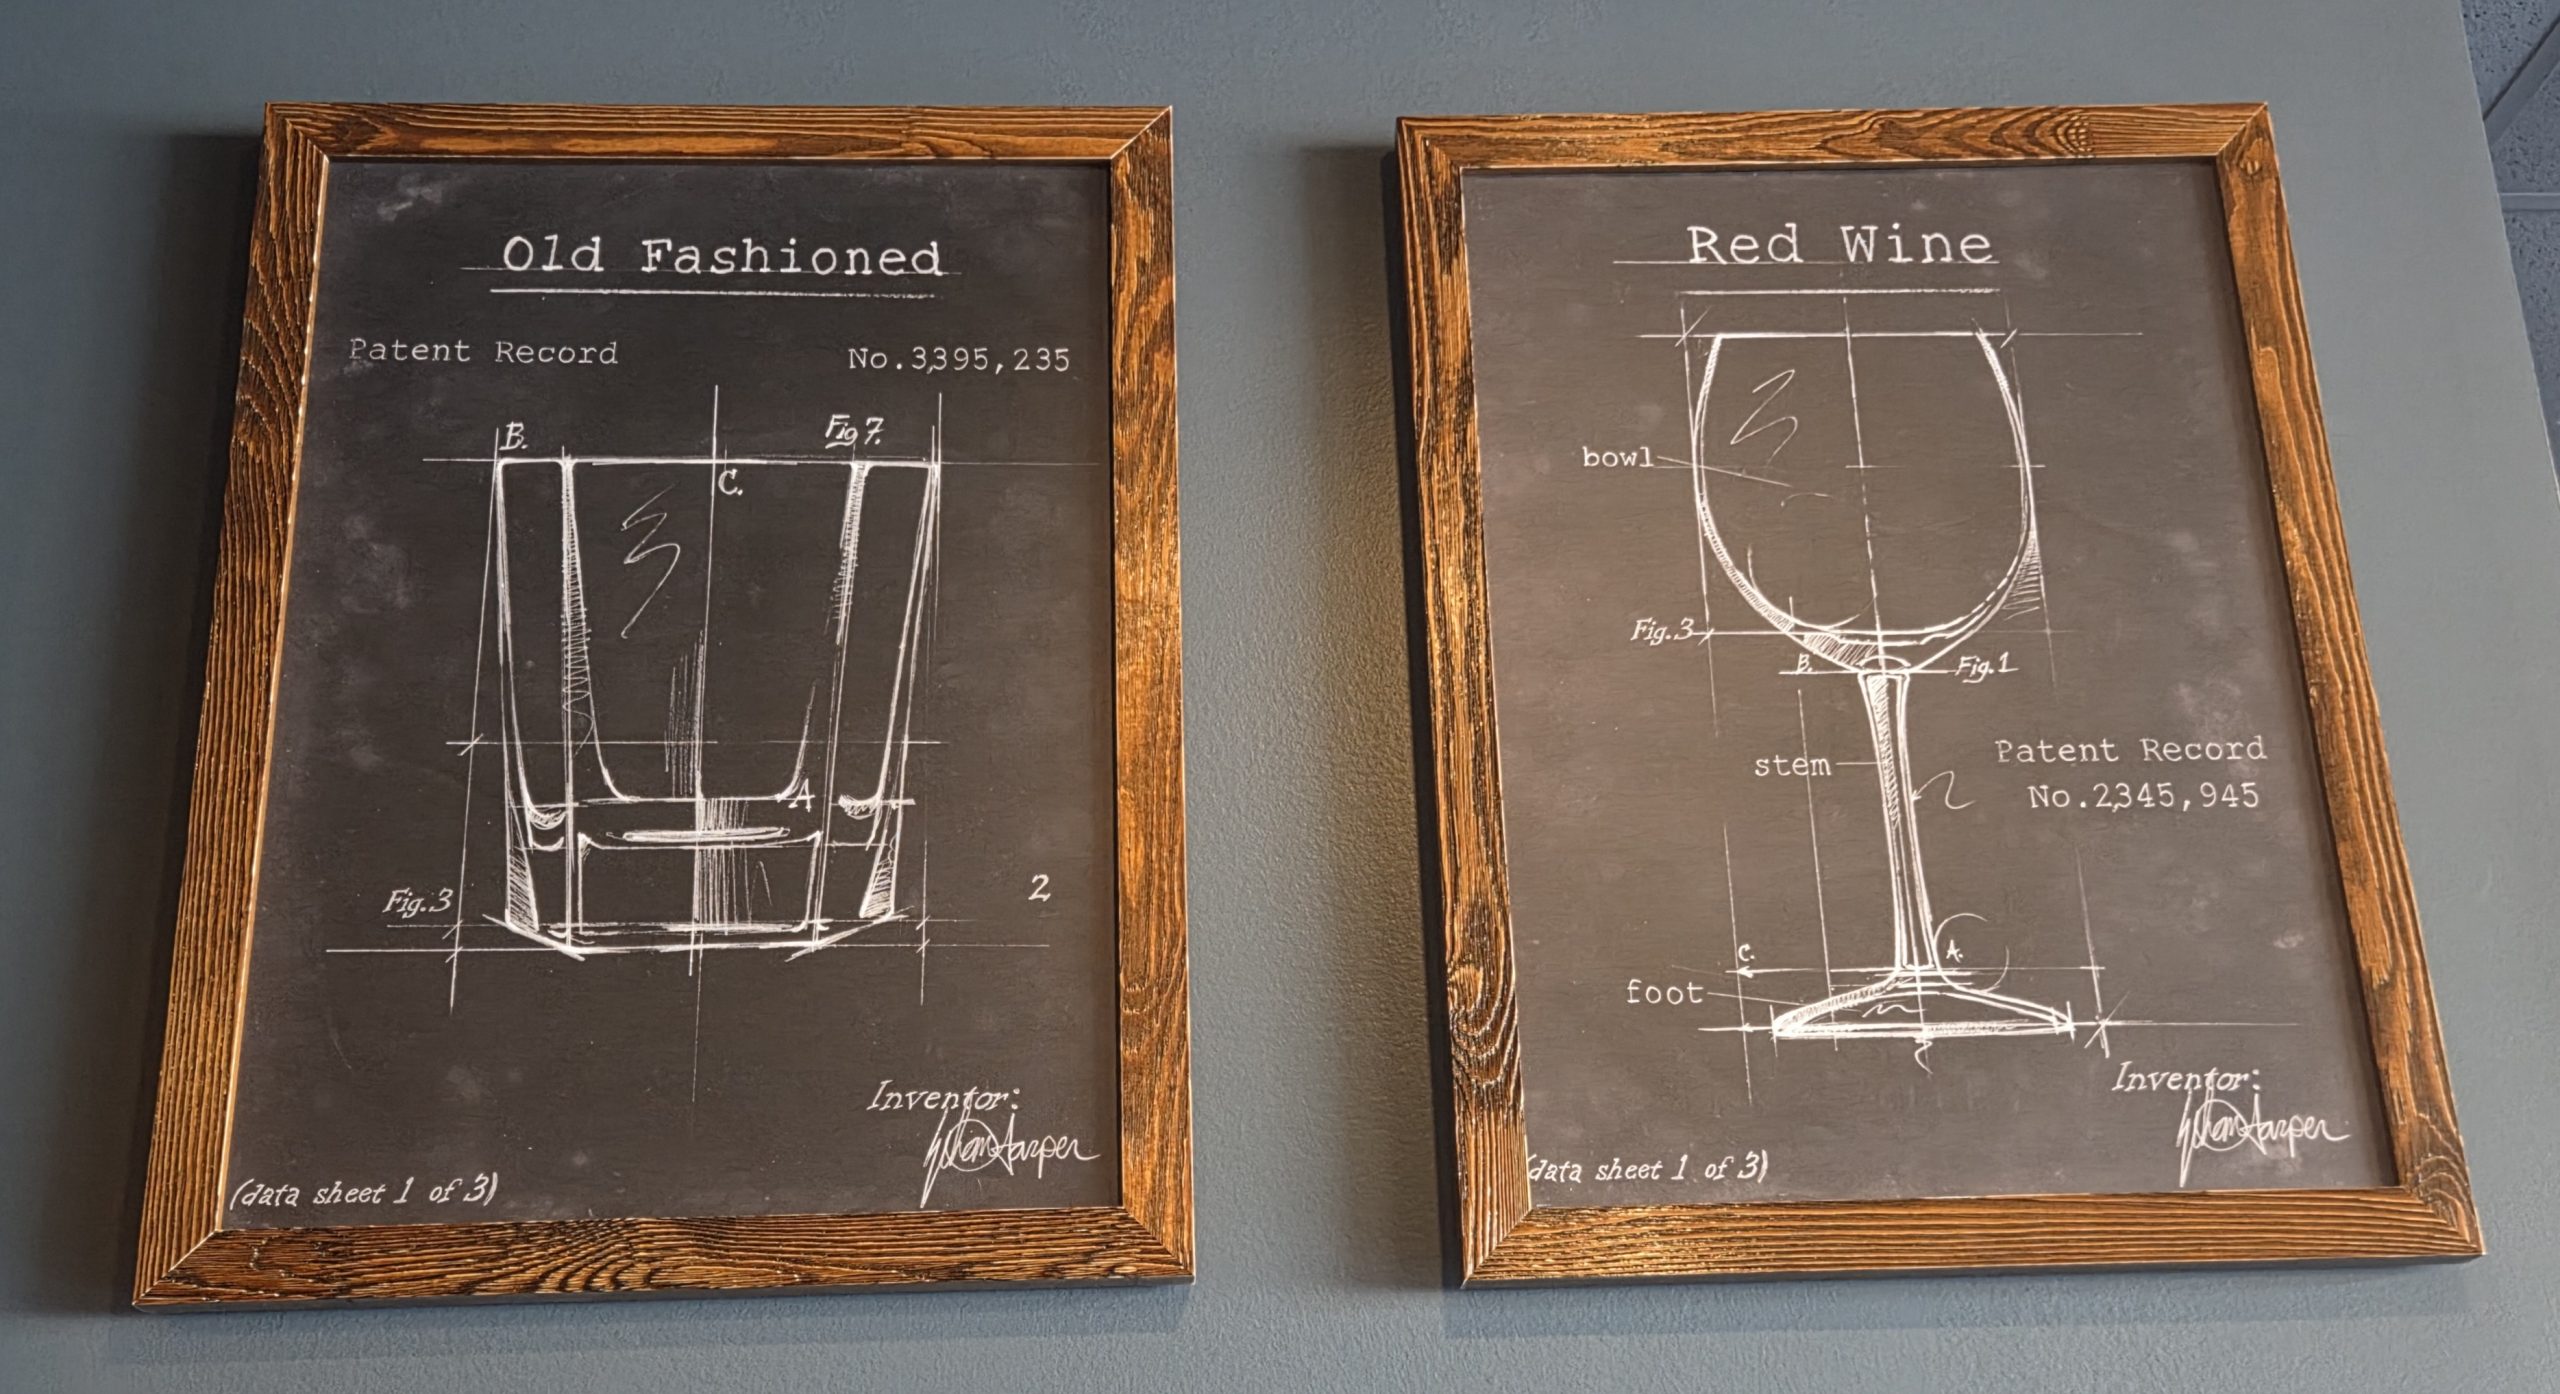 Old Fashioned
Patent Record
No.3,395,235
B.
Fig 7.
C.
A
Fig.3
2
Inventor:
(data sheet 1 of 3)
Red Wine
bowl
Fig.3
B.
Fig.1
stem
Patent Record
No.2,345,945
C.
A.
foot
Inventor:
(data sheet 1 of 3)